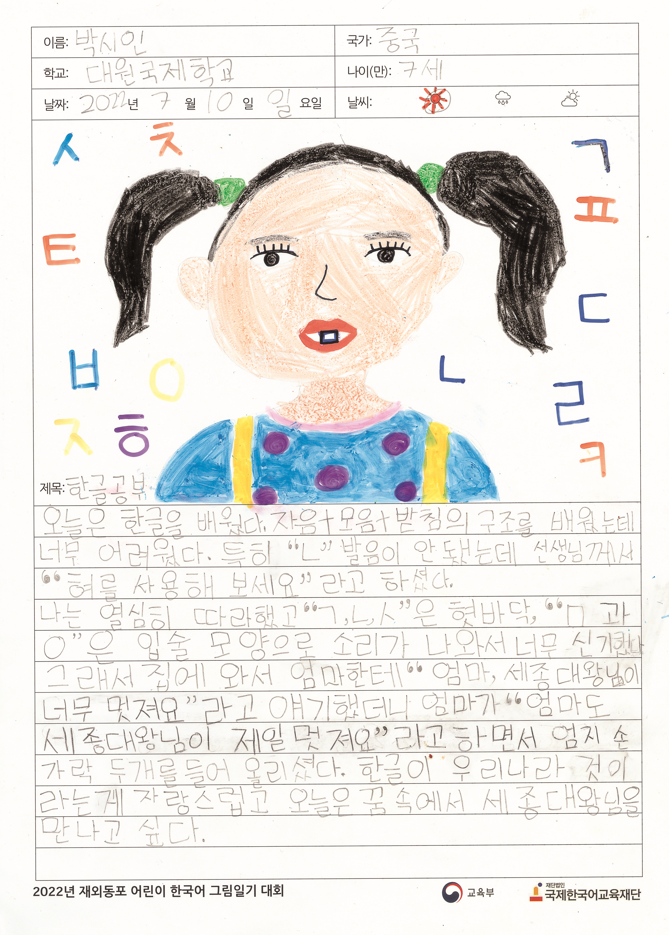 이름: 박시인 국가: 중국
학교: 대원국제학교 나이(만): 7세
날짜: 2022년 7월 10일 일요일 날씨:
ㅅ ㅊ ㄱ
ㅌ ㅍ
ㄷ
ㅂ ㅇ ㄴ ㄹ
ㅈ ㅎ ㅋ
제목: 한글공부
오늘은 한글을 배웠다. 자음+모음+받침의 구조를 배웠는데
너무 어려웠다. 특히 “ㄴ” 발음이 안됐는데 선생님께서
“혀를 사용해 보세요” 라고 하셨다.
나는 열심히 따라했고 “ㄱ,ㄴ,ㅅ”은 혓바닥, “ㅁ과
ㅇ”은 입술 모양으로 소리가 나와서 너무 신기했다
그래서 집에 와서 엄마한테 “엄마, 세종대왕님이
너무 멋져요”라고 얘기했더니 엄마가 “엄마도
세종대왕님이 제일 멋져요”라고 하면서 엄지 손
가락 두개를 들어 올리셨다. 한글이 우리나라 것이
라는게 자랑스럽고 오늘은 꿈속에서 세종대왕님을
만나고 싶다.
2022년 재외동포 어린이 한국어 그림일기 대회 교육부 재단법인 국제한국어교육재단